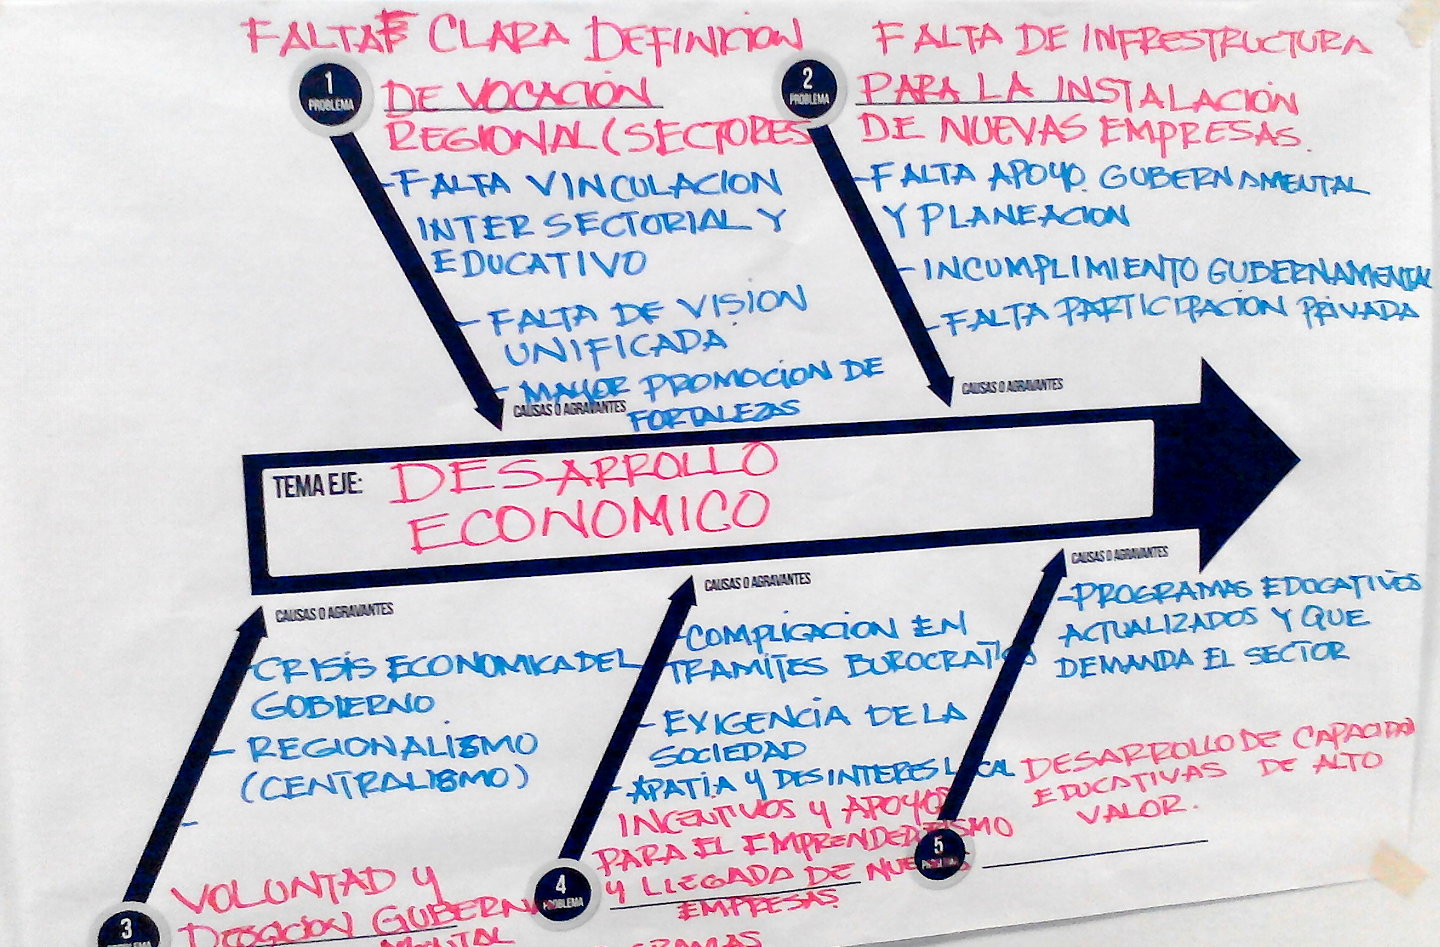 FALTA CLARA DEFINICION
1
PROBLEMA
DE VOCACIÓN
REGIONAL (SECTORES
-FALTA VINCULACION
INTERSECTORIAL Y
EDUCATIVO
- FALTA DE VISION
UNIFICADA
- MAYOR PROMOCION DE
FORTALEZAS
CAUSAS O AGRAVANTES
FALTA DE INFRESTRUCTURA
2
PROBLEMA
PARA LA INSTALACIÓN
DE NUEVAS EMPRESAS.
-FALTA APOYO GUBERNAMENTAL
Y PLANEACION
-INCUMPLIMIENTO GUBERNAMENTAL
-FALTA PARTICIPACION PRIVADA
CAUSAS O AGRAVANTES
TEMA EJE: DESARROLLO
ECONOMICO
CAUSAS O AGRAVANTES
CRISIS ECONOMICA DEL
GOBIERNO
- REGIONALISMO
(CENTRALISMO)
-
VOLUNTAD Y
3
PROBLEMA
GUBERNA
MENTAL
CAUSAS O AGRAVANTES
-COMPLICACION EN
TRAMITES BUROCRATICOS
- EXIGENCIA DE LA
SOCIEDAD
-APATIA Y DESINTERES LOCAL
INCENTIVOS Y APOYOS
PARA EL EMPRENDEDURISMO
4
PROBLEMA
Y LLEGADA DE NUEVAS
EMPRESAS
CAUSAS O AGRAVANTES
-PROGRAMAS EDUCATIVOS
ACTUALIZADOS Y QUE
DEMANDA EL SECTOR
DESARROLLO DE CAPACIDAD
EDUCATIVAS DE ALTO
VALOR.
5
PROBLEMA